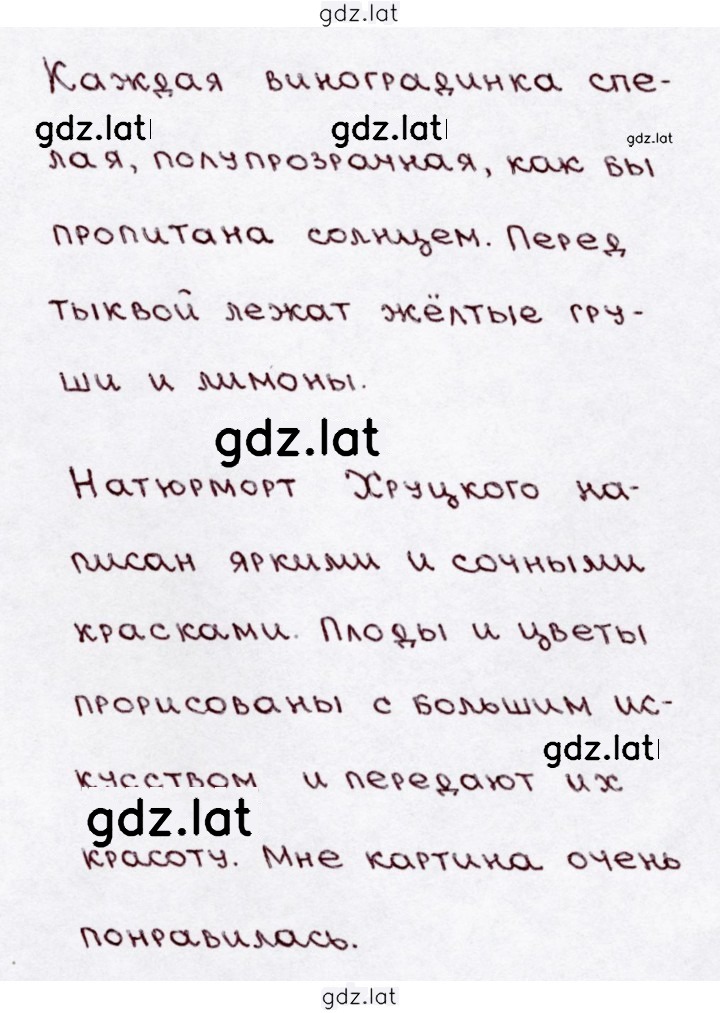 gdz.lat
Каждая виноградинка спе-
gdz.lat gdz.lat gdz.lat
лая, полупрозрачная, как бы
пропитана солнцем. Перед
тыквой лежат жёлтые гру-
ши и лимоны.
gdz.lat
Натюрморт Хруцкого на-
писан яркими и сочными
красками. Плоды и цветы
прорисованы с большим ис-
gdz.lat
кусством и передают их
gdz.lat
красоту. Мне картина очень
понравилась.
gdz.lat